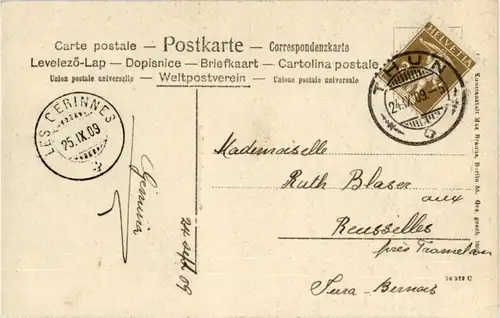 Carte postale — Postkarte — Correspondenzkarte
Levelező-Lap — Dopisnice — Briefkaart — Cartolina postale
Union postale universelle — Weltpostverein — Unione postale universale
HELVETIA
THUN
24.IX.09.-5
LES CERINNES
25.IX.09
Mademoiselle
Ruth Blaser
aux
Reusselles
près Tramelan
Jura-Bernois
24 sept 09
14 232 C